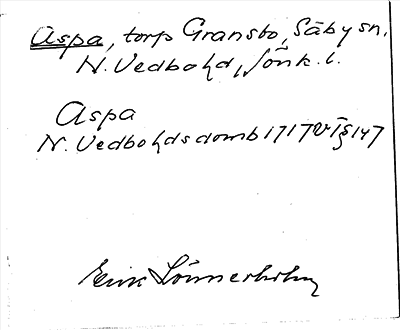 Aspa, torp Gransbo, Säby sn,
N. Vedbo hd, Jönk. l.
Aspa
N. Vedbo hds domb 1717 Vt § 147
Erik Lönnerholm